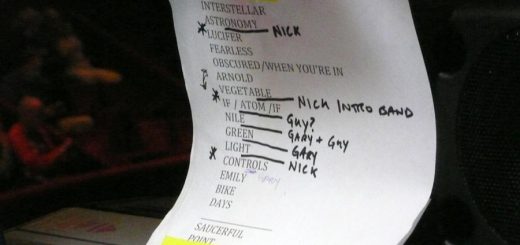 INTERSTELLAR
ASTRONOMY NICK
* LUCIFER
FEARLESS
OBSCURED/WHEN YOU'RE IN
ARNOLD
* VEGETABLE NICK INTRO BAND
IF / ATOM / IF
NILE GUY?
GREEN GARY + GUY
LIGHT GARY
* CONTROLS NICK
EMILY GARY
BIKE
DAYS
SAUCERFUL
POINT